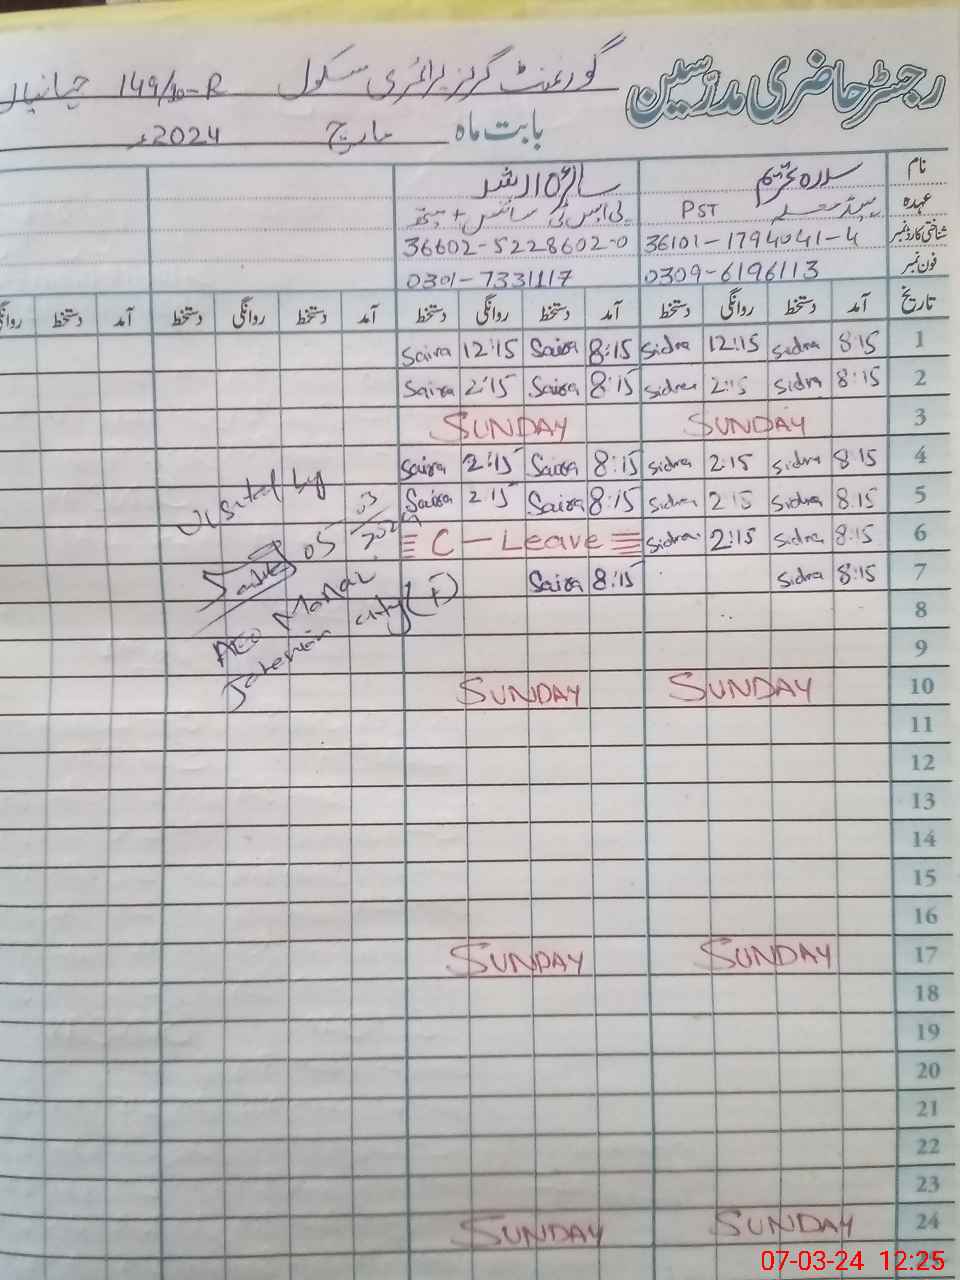 رجسٹر حاضری مدرسین گورنمنٹ گرلز پرائمری سکول 149/10-R جہانیاں
بابت ماہ مارچ 2024ء
نام سدرہ تحریم سائرہ ارشد
عہدہ ہیڈ معلمہ PST پی ایس ٹی سائنس + میتھ
شناختی کارڈ نمبر 36101-1794041-4 36602-5228602-0
فون نمبر 0309-6196113 0301-7331117
تاریخ آمد دستخط روانگی دستخط آمد دستخط روانگی دستخط آمد دستخط روانگی دستخط آمد دستخط روانگی
1 8:15 Sidra 12:15 Sidra 8:15 Saira 12:15 Saira
2 8:15 Sidra 2:15 Sidra 8:15 Saira 2:15 Saira
3 SUNDAY SUNDAY
4 8:15 Sidra 2:15 Sidra 8:15 Saira 2:15 Saira
5 8:15 Sidra 2:15 Sidra 8:15 Saira 2:15 Saira
6 8:15 Sidra 2:15 Sidra C - Leave
7 8:15 Sidra 8:15 Saira
8
9
10 SUNDAY SUNDAY
11
12
13
14
15
16
17 SUNDAY SUNDAY
18
19
20
21
22
23
24 SUNDAY SUNDAY
Visited by
05/03/2024
AEO Markaz
Jahanian city (F)
07-03-24 12:25